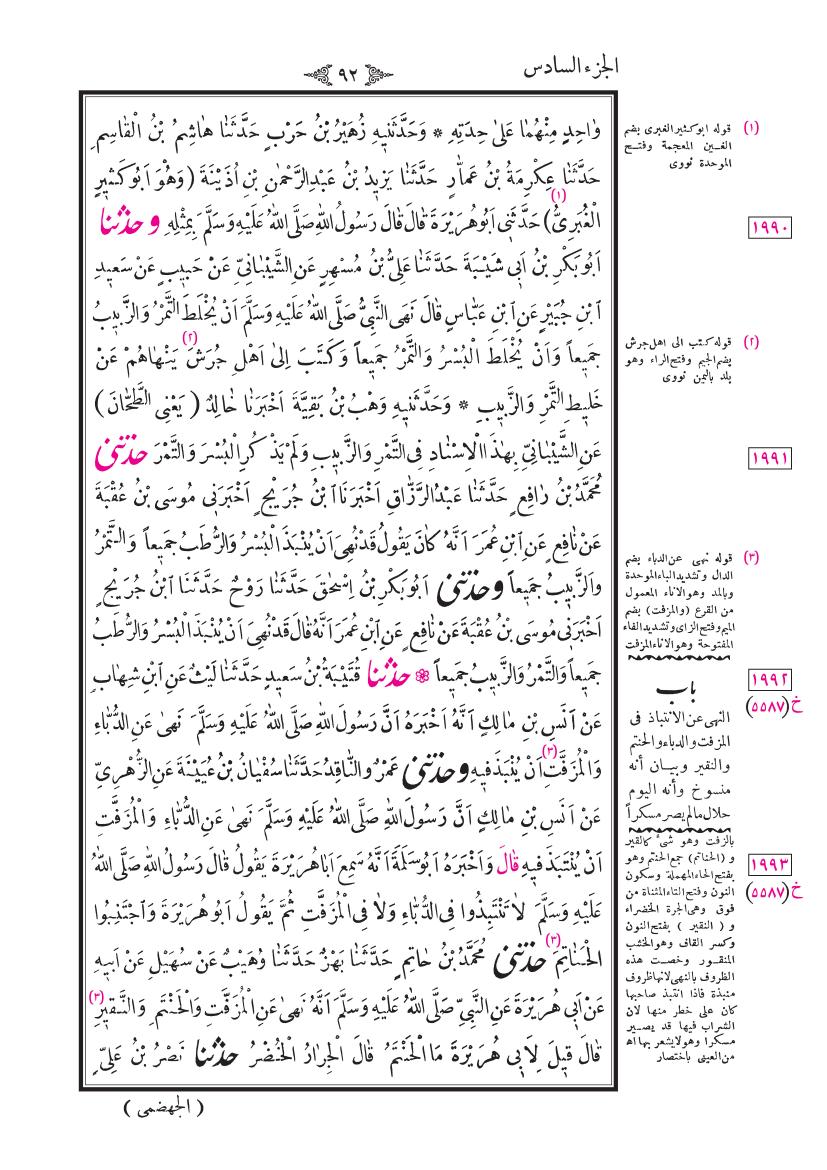 الجزء السادس
٩٢
وَاحِدٍ مِنْهُمَا عَلَى حِدَتِهِ * وَحَدَّثَنِيهِ زُهَيْرُ بْنُ حَرْبٍ حَدَّثَنَا هَاشِمُ بْنُ الْقَاسِمِ
حَدَّثَنَا عِكْرِمَةُ بْنُ عَمَّارٍ حَدَّثَنَا يَزِيدُ بْنُ عَبْدِالرَّحْمٰنِ بْنِ اُذَيْنَةَ (وَهُوَ اَبُو كَثِيرٍ
الْغُبَرِيُّ)(١) حَدَّثَنِي اَبُو هُرَيْرَةَ قَالَ قَالَ رَسُولُ اللّٰهِ صَلَّى اللّٰهُ عَلَيْهِ وَسَلَّمَ بِمِثْلِهِ وحدثنا
اَبُو بَكْرِ بْنُ اَبِي شَيْبَةَ حَدَّثَنَا عَلِيُّ بْنُ مُسْهِرٍ عَنِ الشَّيْبَانِيِّ عَنْ حَبِيبٍ عَنْ سَعِيدِ
ابْنِ جُبَيْرٍ عَنِ ابْنِ عَبَّاسٍ قَالَ نَهَى النَّبِيُّ صَلَّى اللّٰهُ عَلَيْهِ وَسَلَّمَ اَنْ يُخْلَطَ التَّمْرُ وَالزَّبِيبُ
جَمِيعاً وَاَنْ يُخْلَطَ الْبُسْرُ وَالتَّمْرُ جَمِيعاً وَكَتَبَ اِلَى اَهْلِ جُرَشَ(٢) يَنْهَاهُمْ عَنْ
خَلِيطِ التَّمْرِ وَالزَّبِيبِ * وَحَدَّثَنِيهِ وَهْبُ بْنُ بَقِيَّةَ اَخْبَرَنَا خَالِدٌ (يَعْنِي الطَّحَّانَ)
عَنِ الشَّيْبَانِيِّ بِهٰذَا الْاِسْنَادِ فِي التَّمْرِ وَالزَّبِيبِ وَلَمْ يَذْكُرِ الْبُسْرَ وَالتَّمْرَ حدثني
مُحَمَّدُ بْنُ رَافِعٍ حَدَّثَنَا عَبْدُ الرَّزَّاقِ اَخْبَرَنَا ابْنُ جُرَيْجٍ اَخْبَرَنِي مُوسَى بْنُ عُقْبَةَ
عَنْ نَافِعٍ عَنِ ابْنِ عُمَرَ اَنَّهُ كَانَ يَقُولُ قَدْ نُهِيَ اَنْ يُنْبَذَ الْبُسْرُ وَالرُّطَبُ جَمِيعاً وَالتَّمْرُ
وَالزَّبِيبُ جَمِيعاً وحدثني اَبُو بَكْرِ بْنُ اِسْحٰقَ حَدَّثَنَا رَوْحٌ حَدَّثَنَا ابْنُ جُرَيْجٍ
اَخْبَرَنِي مُوسَى بْنُ عُقْبَةَ عَنْ نَافِعٍ عَنِ ابْنِ عُمَرَ اَنَّهُ قَالَ قَدْ نُهِيَ اَنْ يُنْبَذَ الْبُسْرُ وَالرُّطَبُ
جَمِيعاً وَالتَّمْرُ وَالزَّبِيبُ جَمِيعاً * حدثنا قُتَيْبَةُ بْنُ سَعِيدٍ حَدَّثَنَا لَيْثٌ عَنِ ابْنِ شِهَابٍ
عَنْ اَنَسِ بْنِ مَالِكٍ اَنَّهُ اَخْبَرَهُ اَنَّ رَسُولَ اللّٰهِ صَلَّى اللّٰهُ عَلَيْهِ وَسَلَّمَ نَهَى عَنِ الدُّبَّاءِ
وَالْمُزَفَّتِ(٣) اَنْ يُنْبَذَ فِيهِ وحدثني عَمْرٌو النَّاقِدُ حَدَّثَنَا سُفْيَانُ بْنُ عُيَيْنَةَ عَنِ الزُّهْرِيِّ
عَنْ اَنَسِ بْنِ مَالِكٍ اَنَّ رَسُولَ اللّٰهِ صَلَّى اللّٰهُ عَلَيْهِ وَسَلَّمَ نَهَى عَنِ الدُّبَّاءِ وَالْمُزَفَّتِ
اَنْ يُنْتَبَذَ فِيهِ قَالَ وَاَخْبَرَهُ اَبُو سَلَمَةَ اَنَّهُ سَمِعَ اَبَا هُرَيْرَةَ يَقُولُ قَالَ رَسُولُ اللّٰهِ صَلَّى اللّٰهُ
عَلَيْهِ وَسَلَّمَ لَا تَنْتَبِذُوا فِي الدُّبَّاءِ وَلَا فِي الْمُزَفَّتِ ثُمَّ يَقُولُ اَبُو هُرَيْرَةَ وَاجْتَنِبُوا
الْحَنَاتِمَ(٣) حدثني مُحَمَّدُ بْنُ حَاتِمٍ حَدَّثَنَا بَهْزٌ حَدَّثَنَا وُهَيْبٌ عَنْ سُهَيْلٍ عَنْ اَبِيهِ
عَنْ اَبِي هُرَيْرَةَ عَنِ النَّبِيِّ صَلَّى اللّٰهُ عَلَيْهِ وَسَلَّمَ اَنَّهُ نَهَى عَنِ الْمُزَفَّتِ وَالْحَنْتَمِ وَالنَّقِيرِ(٣)
قَالَ قِيلَ لِاَبِي هُرَيْرَةَ مَا الْحَنْتَمُ قَالَ الْجِرَارُ الْخُضْرُ حدثنا نَصْرُ بْنُ عَلِيٍّ
(الجهضمى)
(١) قوله ابو كثير الغبرى بضم
الغين المعجمة وفتح
الموحدة نووى
١٩٩٠
(٢) قوله كتب الى اهل جرش
بضم الجيم وفتح الراء وهو
بلد باليمن نووى
١٩٩١
(٣) قوله نهى عن الدباء بضم
الدال وتشديد الباء الموحدة
وبالمد وهو الاناء المعمول
من القرع (والمزفت) بضم
الميم وفتح الزاى وتشديد الفاء
المفتوحة وهو الاناء المزفت
١٩٩٢
خ(٥٥٨٧)
باب
النهى عن الانتباذ فى
المزفت والدباء والحنتم
والنقير وبيان أنه
منسوخ وأنه اليوم
حلال مالم يصر مسكراً
بالزفت وهو شئ كالقير
و (الحناتم) جمع الحنتم وهو
بفتح الحاء المهملة وسكون
النون وفتح التاء المثناة من
فوق وهى الجرة الخضراء
و (النقير) بفتح النون
وكسر القاف وهو الخشب
المنقور وخصت هذه
الظروف بالنهى لانها ظروف
منبذة فاذا انتبذ صاحبها
كان على خطر منها لان
الشراب فيها قد يصير
مسكرا وهو لايشعر بها اهـ
من العينى باختصار
١٩٩٣
خ(٥٥٨٧)